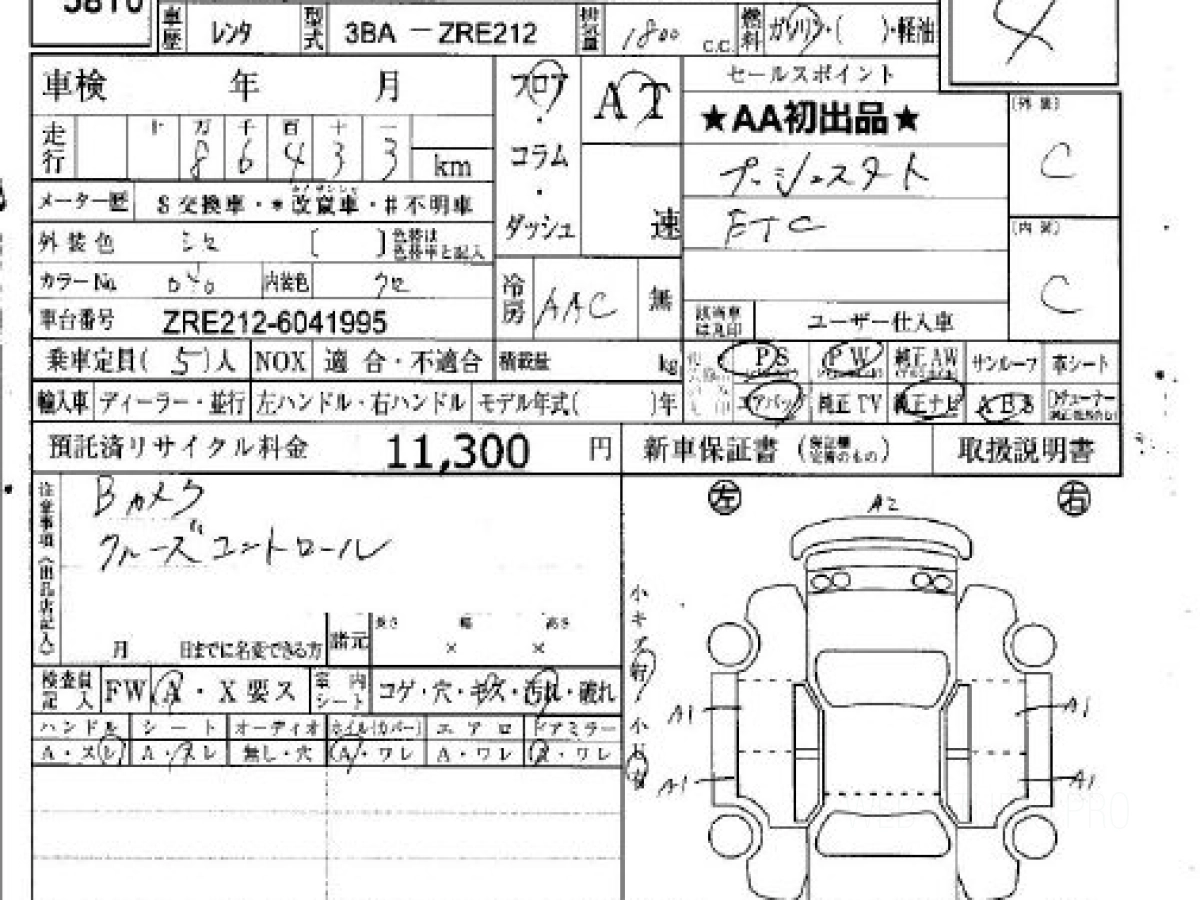 5810
車歴 レンタ 型式 3BA －ZRE212 排気量 1800 C.C. 燃料 ガソリン・( )・軽油
4
車検 年 月
走行 十 万 千 百 十 一
8 6 4 3 3 km
メーター歴 $ 交換車・＊改竄車・# 不明車
外装色 シロ [ ] 色替は色替車と記入
カラーNo. 040 内装色 クロ
車台番号 ZRE212-6041995
フロア・コラム・ダッシュ
AT
速
冷房 AAC 無
セールスポイント
★AA初出品★
プッシュスタート
ETC
該当車は丸印 ユーザー仕入車
(外装) C
(内装) C
乗車定員( 5 )人 NOX 適合・不適合 積載量 kg
PS PW 純正AW サンルーフ 革シート
輸入車 ディーラー・並行 左ハンドル・右ハンドル モデル年式( )年
エアバッグ 純正TV 純正ナビ ABS
預託済リサイクル料金 11,300 円
新車保証書 (保証欄完備のもの) 取扱説明書
注意事項(出品店記入)
Bカメラ
クルーズコントロール
月 日までに名変できる方 諸元 長さ × 幅 × 高さ
検査員記入 FW A・X要ス 室内シート コゲ・穴・キズ・汚れ・破れ
ハンドル シート オーディオ ホイル(カバー) エアロ ドアミラー
A・スレ A・スレ 無し・穴 A・ワレ A・ワレ A・ワレ
左 右
A2
小キズ有
小凹有
A1 A1
A1 A1